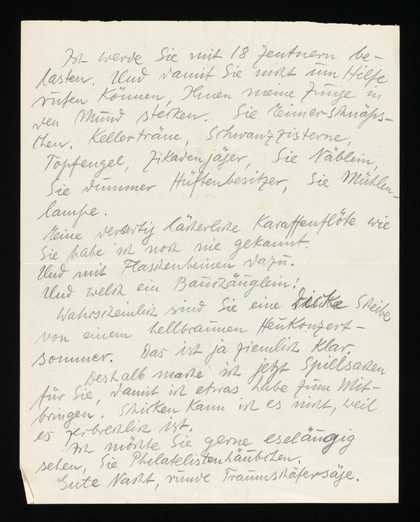 Ich werde Sie mit 18 Zentnern be-
lasten. Und damit Sie nicht um Hilfe
rufen können, Ihnen meine Zunge in
den Mund stecken. Sie
chen. Kellerträne, Schwanzzisterne,
Topfengel, Zikadenjäger, Sie Näblein,
Sie dummer Hüftenbesitzer, Sie Mühlen-
lampe.
Keine derartig lächerliche Karaffenflöte wie
Sie habe ich noch nie gekannt.
Und mit Flaschenbeinen dazu.
Und welch ein Bauchzäunglein!
Wahrscheinlich sind Sie eine Dicke Scheibe
von einem hellbraunen Heukonzert-
sommer. Das ist ja ziemlich klar.
Deshalb mache ich jetzt Spillsachen
für Sie, damit ich etwas habe zum Mit-
bringen. Schicken kann ich es nicht, weil
es zerbrechlich ist.
Ich möchte Sie gerne eseläugig
sehen, Sie Philatelistenhäubchen.
Gute Nacht, runde Traumschäfersäge.